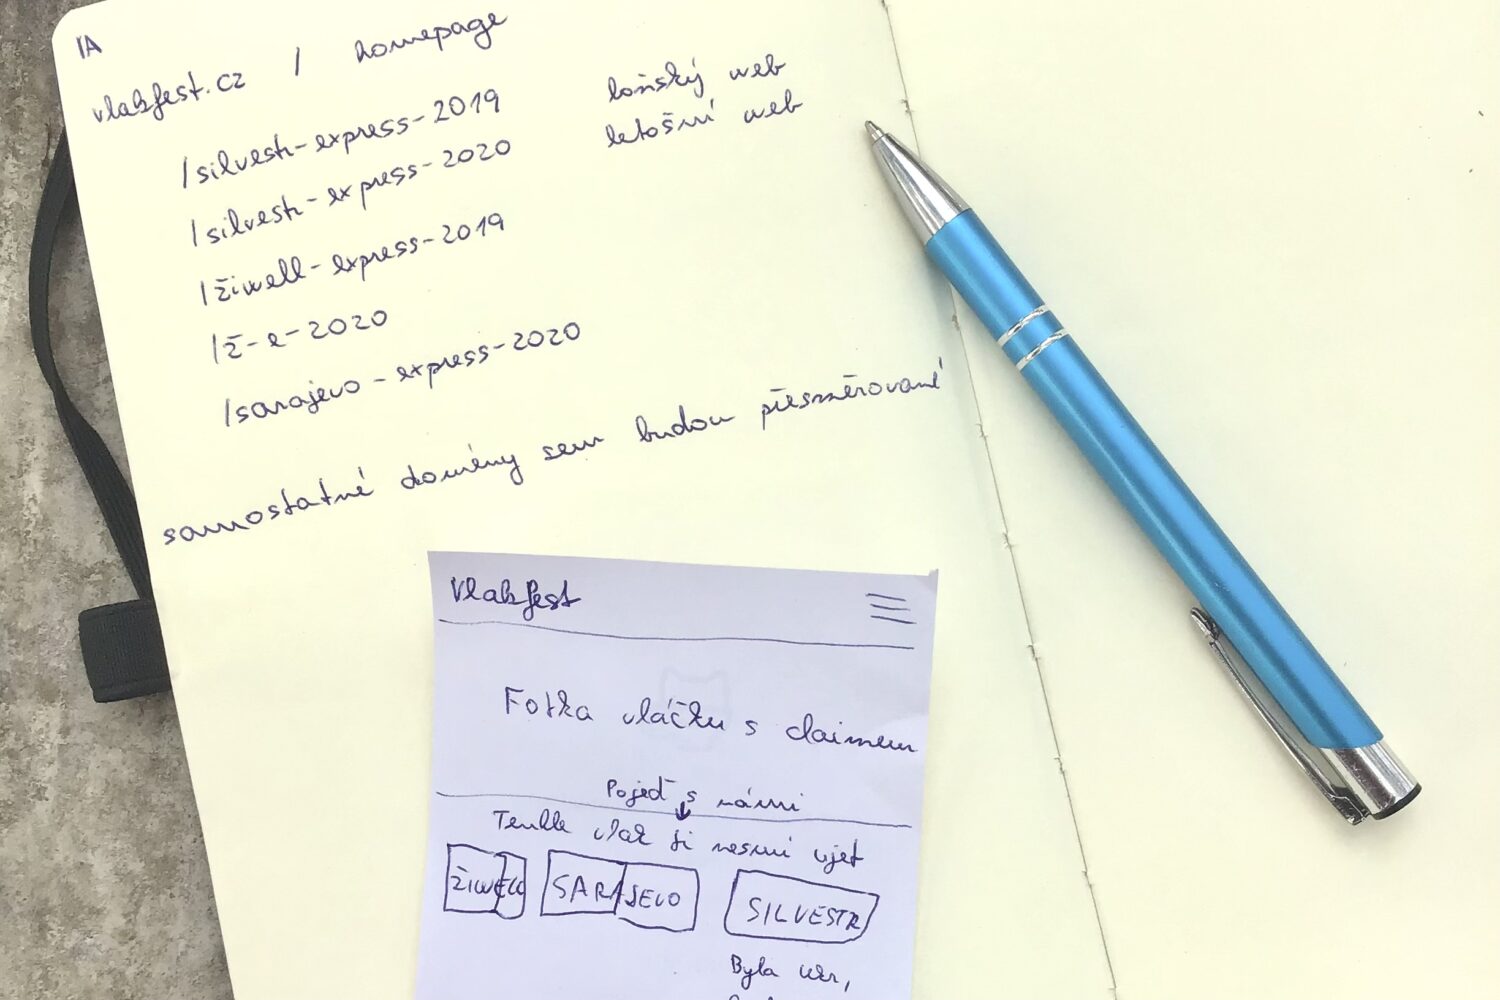 IA
vlakfest.cz / homepage
/silvestr-express-2019 loňský web
/silvestr-express-2020 letošní web
/žiwell-express-2019
/ž-e-2020
/sarajevo-express-2020
samostatné domény sem budou přesměrované
Vlakfest
Fotka vláčku s claimem
Pojeď s námi
Tenhle vlak ti nesmí ujet
ŽIWELL SARAJEVO SILVESTR
Byla